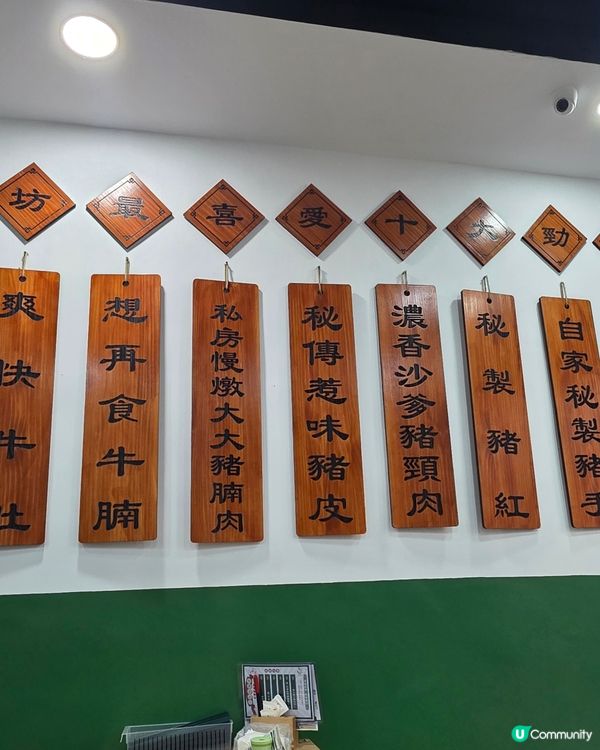 坊最喜愛十大勁
爽快牛肚
想再食牛腩
私房慢燉大大豬腩肉
秘傳惹味豬皮
濃香沙爹豬頸肉
秘製豬紅
自家秘製豬手
U Community